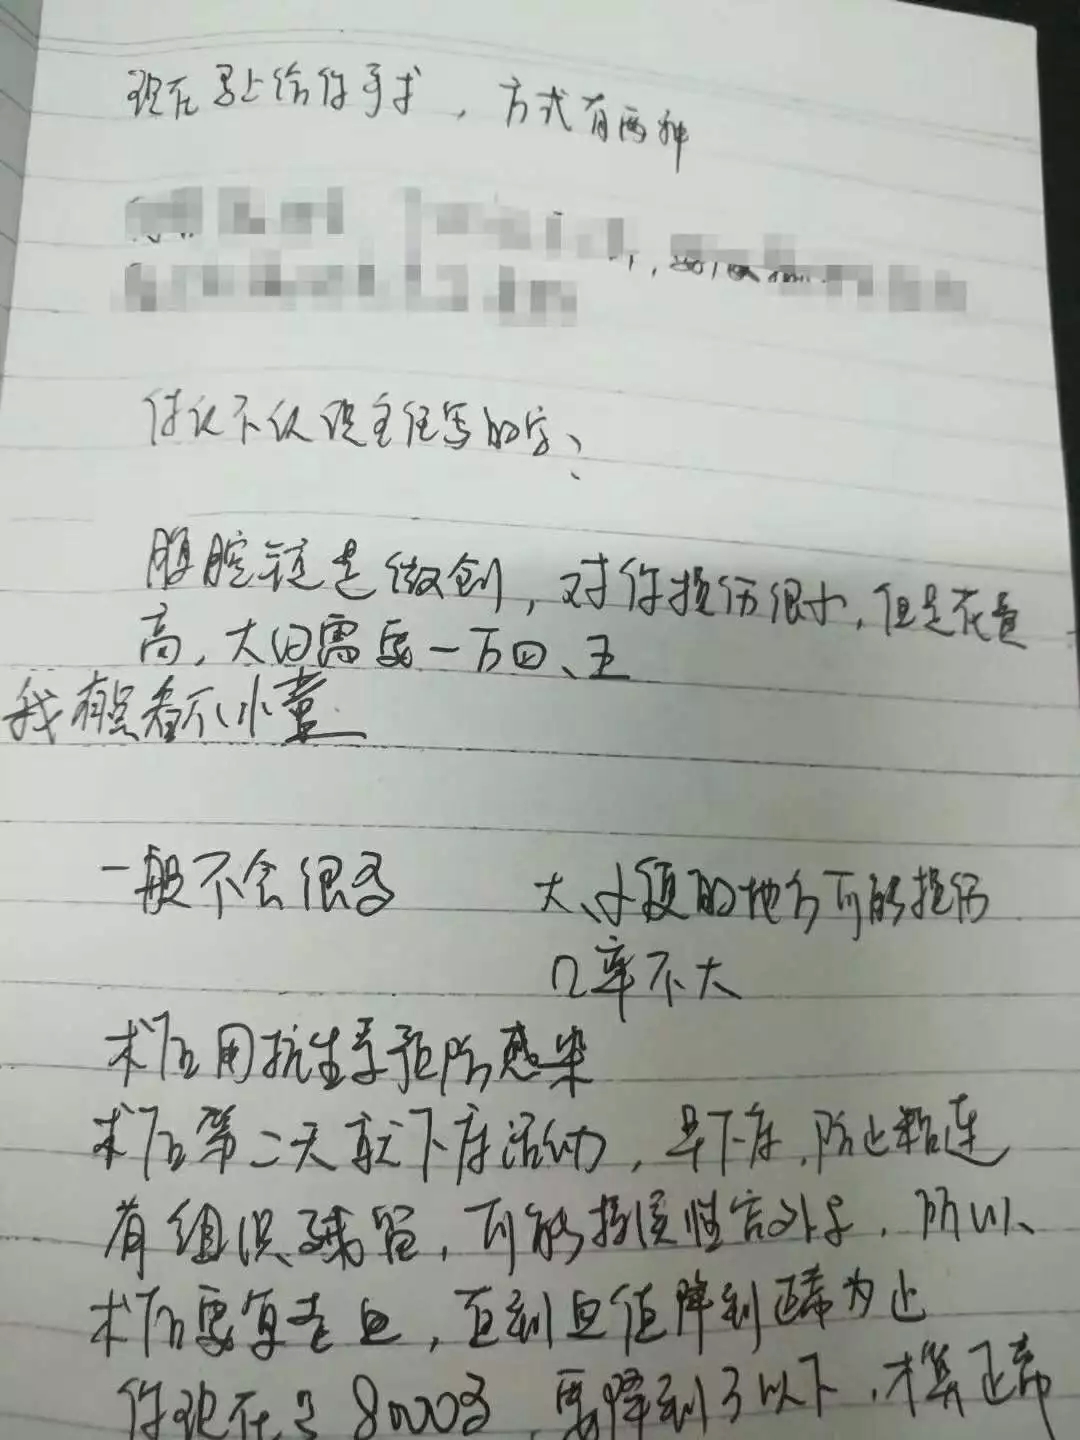 现在马上给你手术，方式有两种
你认不认识主任写的字？
腹腔镜是微创，对你损伤很小，但是花费
高，大the需要一万四、五
我有点看不小董
一般不会很多
大、小便的地方可能损伤
几率不大
术后用抗生素预防感染
术后第二天就下床活动，早下床，防止粘连
有组织残留，可能持续性宫外孕，所以
术后要复查血，直到血值降到正常为止
你现在3 8000多，要降到3以下，才算正常